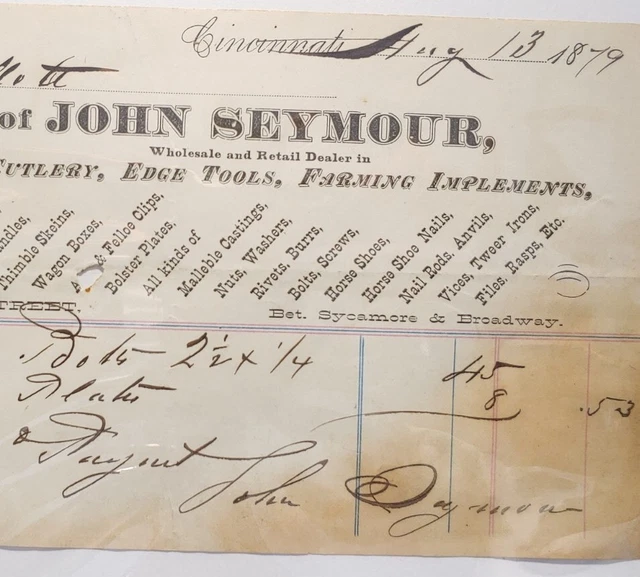 Cincinnati, Aug 13 1879
of JOHN SEYMOUR,
Wholesale and Retail Dealer in
CUTLERY, EDGE TOOLS, FARMING IMPLEMENTS,
Thimble Skeins,
Wagon Boxes,
& Felloe Clips,
Bolster Plates.
All kinds of
Malleble Castings,
Nuts, Washers,
Rivets, Burrs,
Bolts, Screws,
Horse Shoes,
Horse Shoe Nails,
Nail Rods. Anvils,
Vices, Tweer Irons,
Files. Rasps, Etc.
STREET.
Bet. Sycamore & Broadway.
Bolts 2½ x ¼ 45
Plates 8 .53
John Seymour